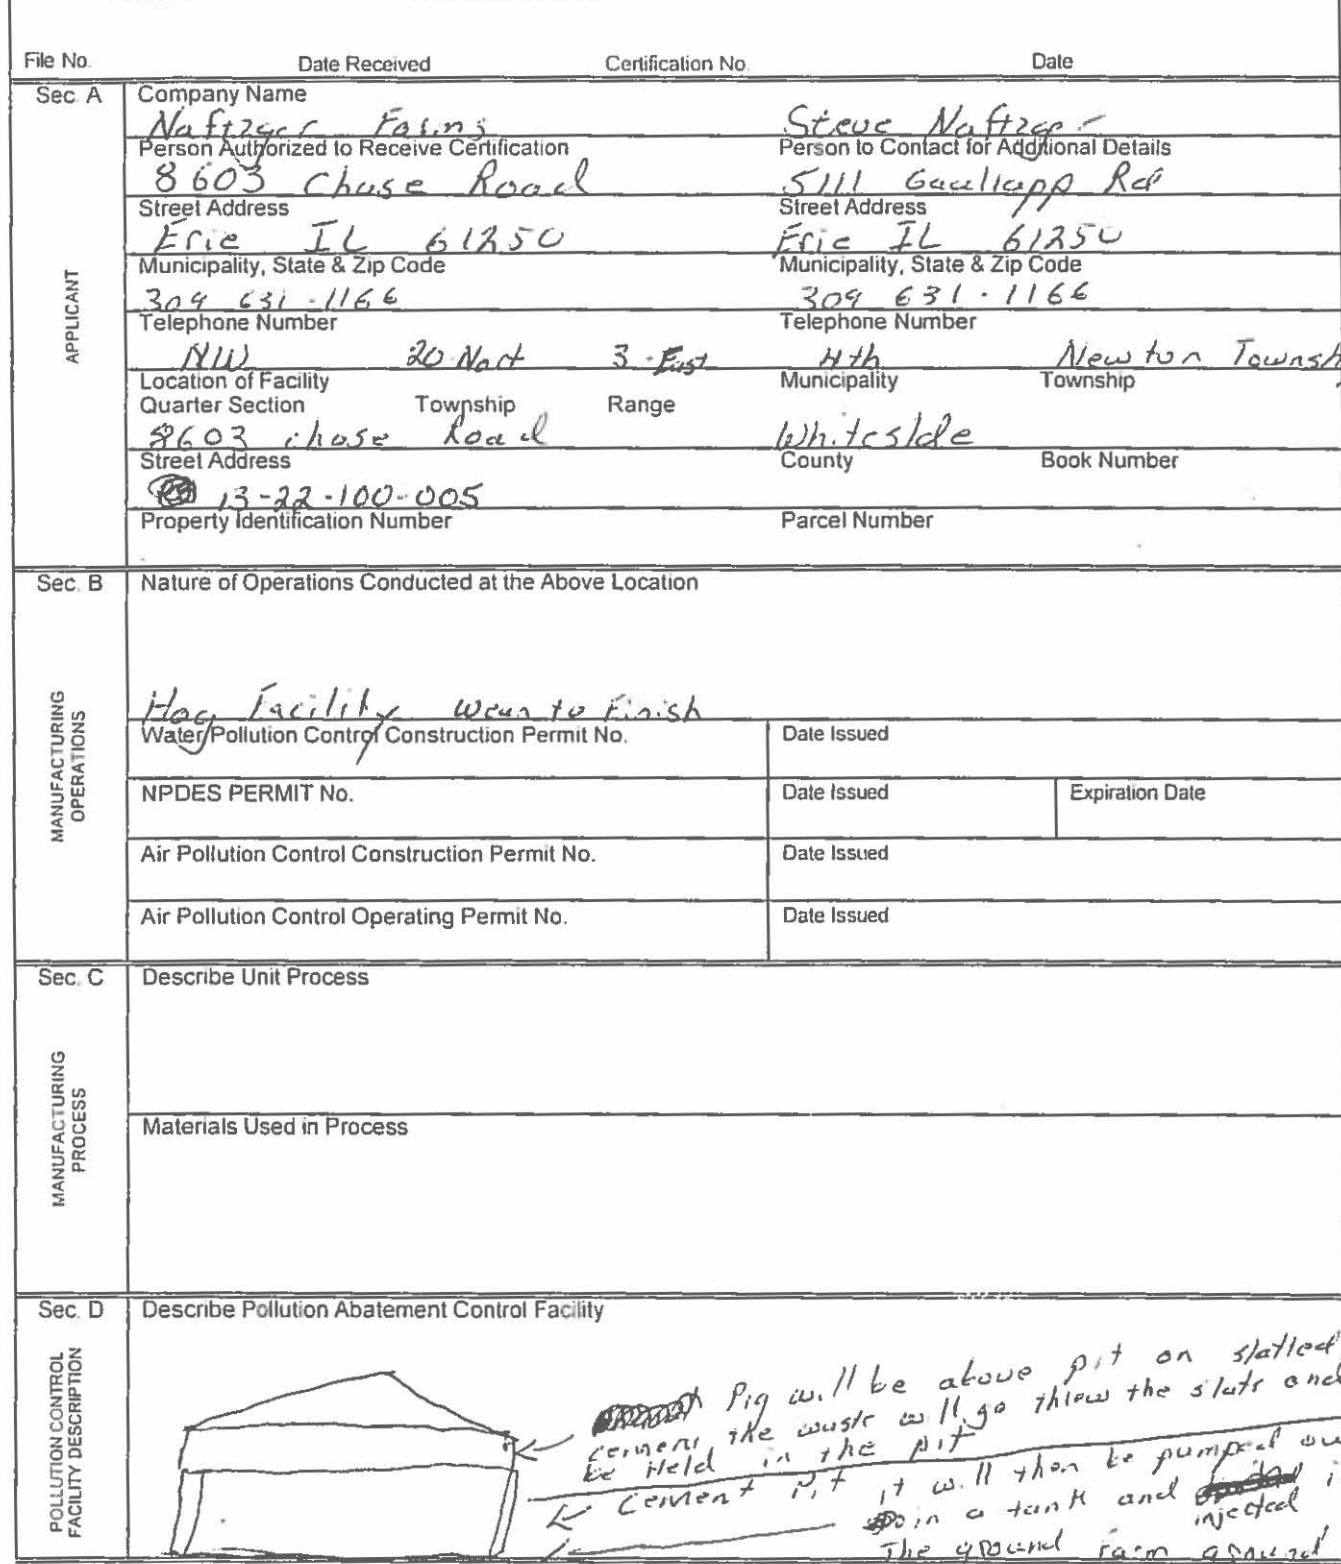 File No. Date Received Certification No. Date
Sec. A Company Name
Naftzger Farms Steve Naftzger
Person Authorized to Receive Certification Person to Contact for Additional Details
8603 Chase Road 5111 Rd
Street Address Street Address
Erie IL 61250 Erie IL 61250
Municipality, State & Zip Code Municipality, State & Zip Code
309 631-1166 309 631-1166
Telephone Number Telephone Number
NW 20 Nort 3-East 4th Newton Townsh
Location of Facility Municipality Township
Quarter Section Township Range
8603 chase Road Whiteside
Street Address County Book Number
13-22-100-005
Property Identification Number Parcel Number
APPLICANT
Sec. B Nature of Operations Conducted at the Above Location
Hog Facility Wean to Finish
Water Pollution Control Construction Permit No. Date Issued
NPDES PERMIT No. Date Issued Expiration Date
Air Pollution Control Construction Permit No. Date Issued
Air Pollution Control Operating Permit No. Date Issued
MANUFACTURING
OPERATIONS
Sec. C Describe Unit Process
Materials Used in Process
MANUFACTURING
PROCESS
Sec. D Describe Pollution Abatement Control Facility
POLLUTION CONTROL
FACILITY DESCRIPTION
Pig will be above pit on slatted
cement the waste will go threw the slats and
be Held in the pit
Cement Pit it will then be pumped ou
in a tank and injected i
The ground farm ground